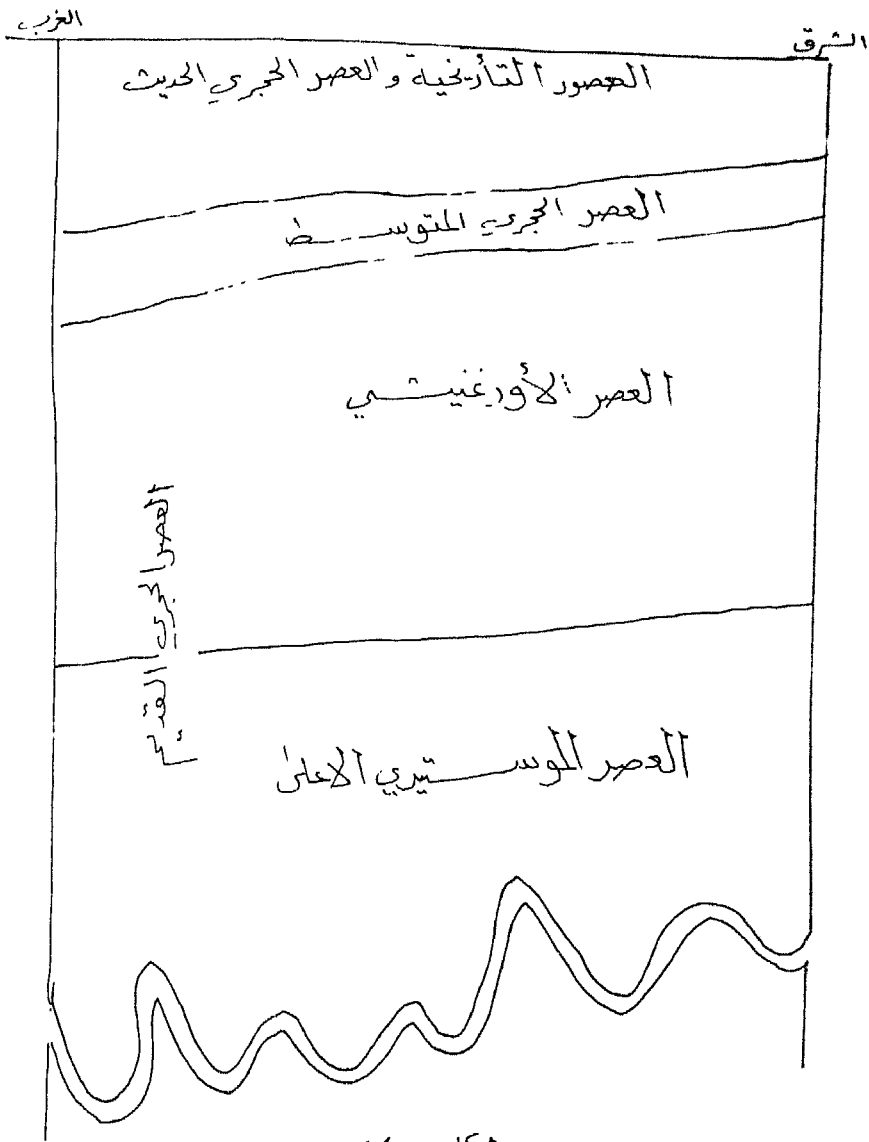 الشرق
الغرب
العصور التأريخية والعصر الحجري الحديث
العصر الحجري المتوسط
العصر الأورغنيشي
العصر الحجري القديم
العصر الموستيري الاعلى